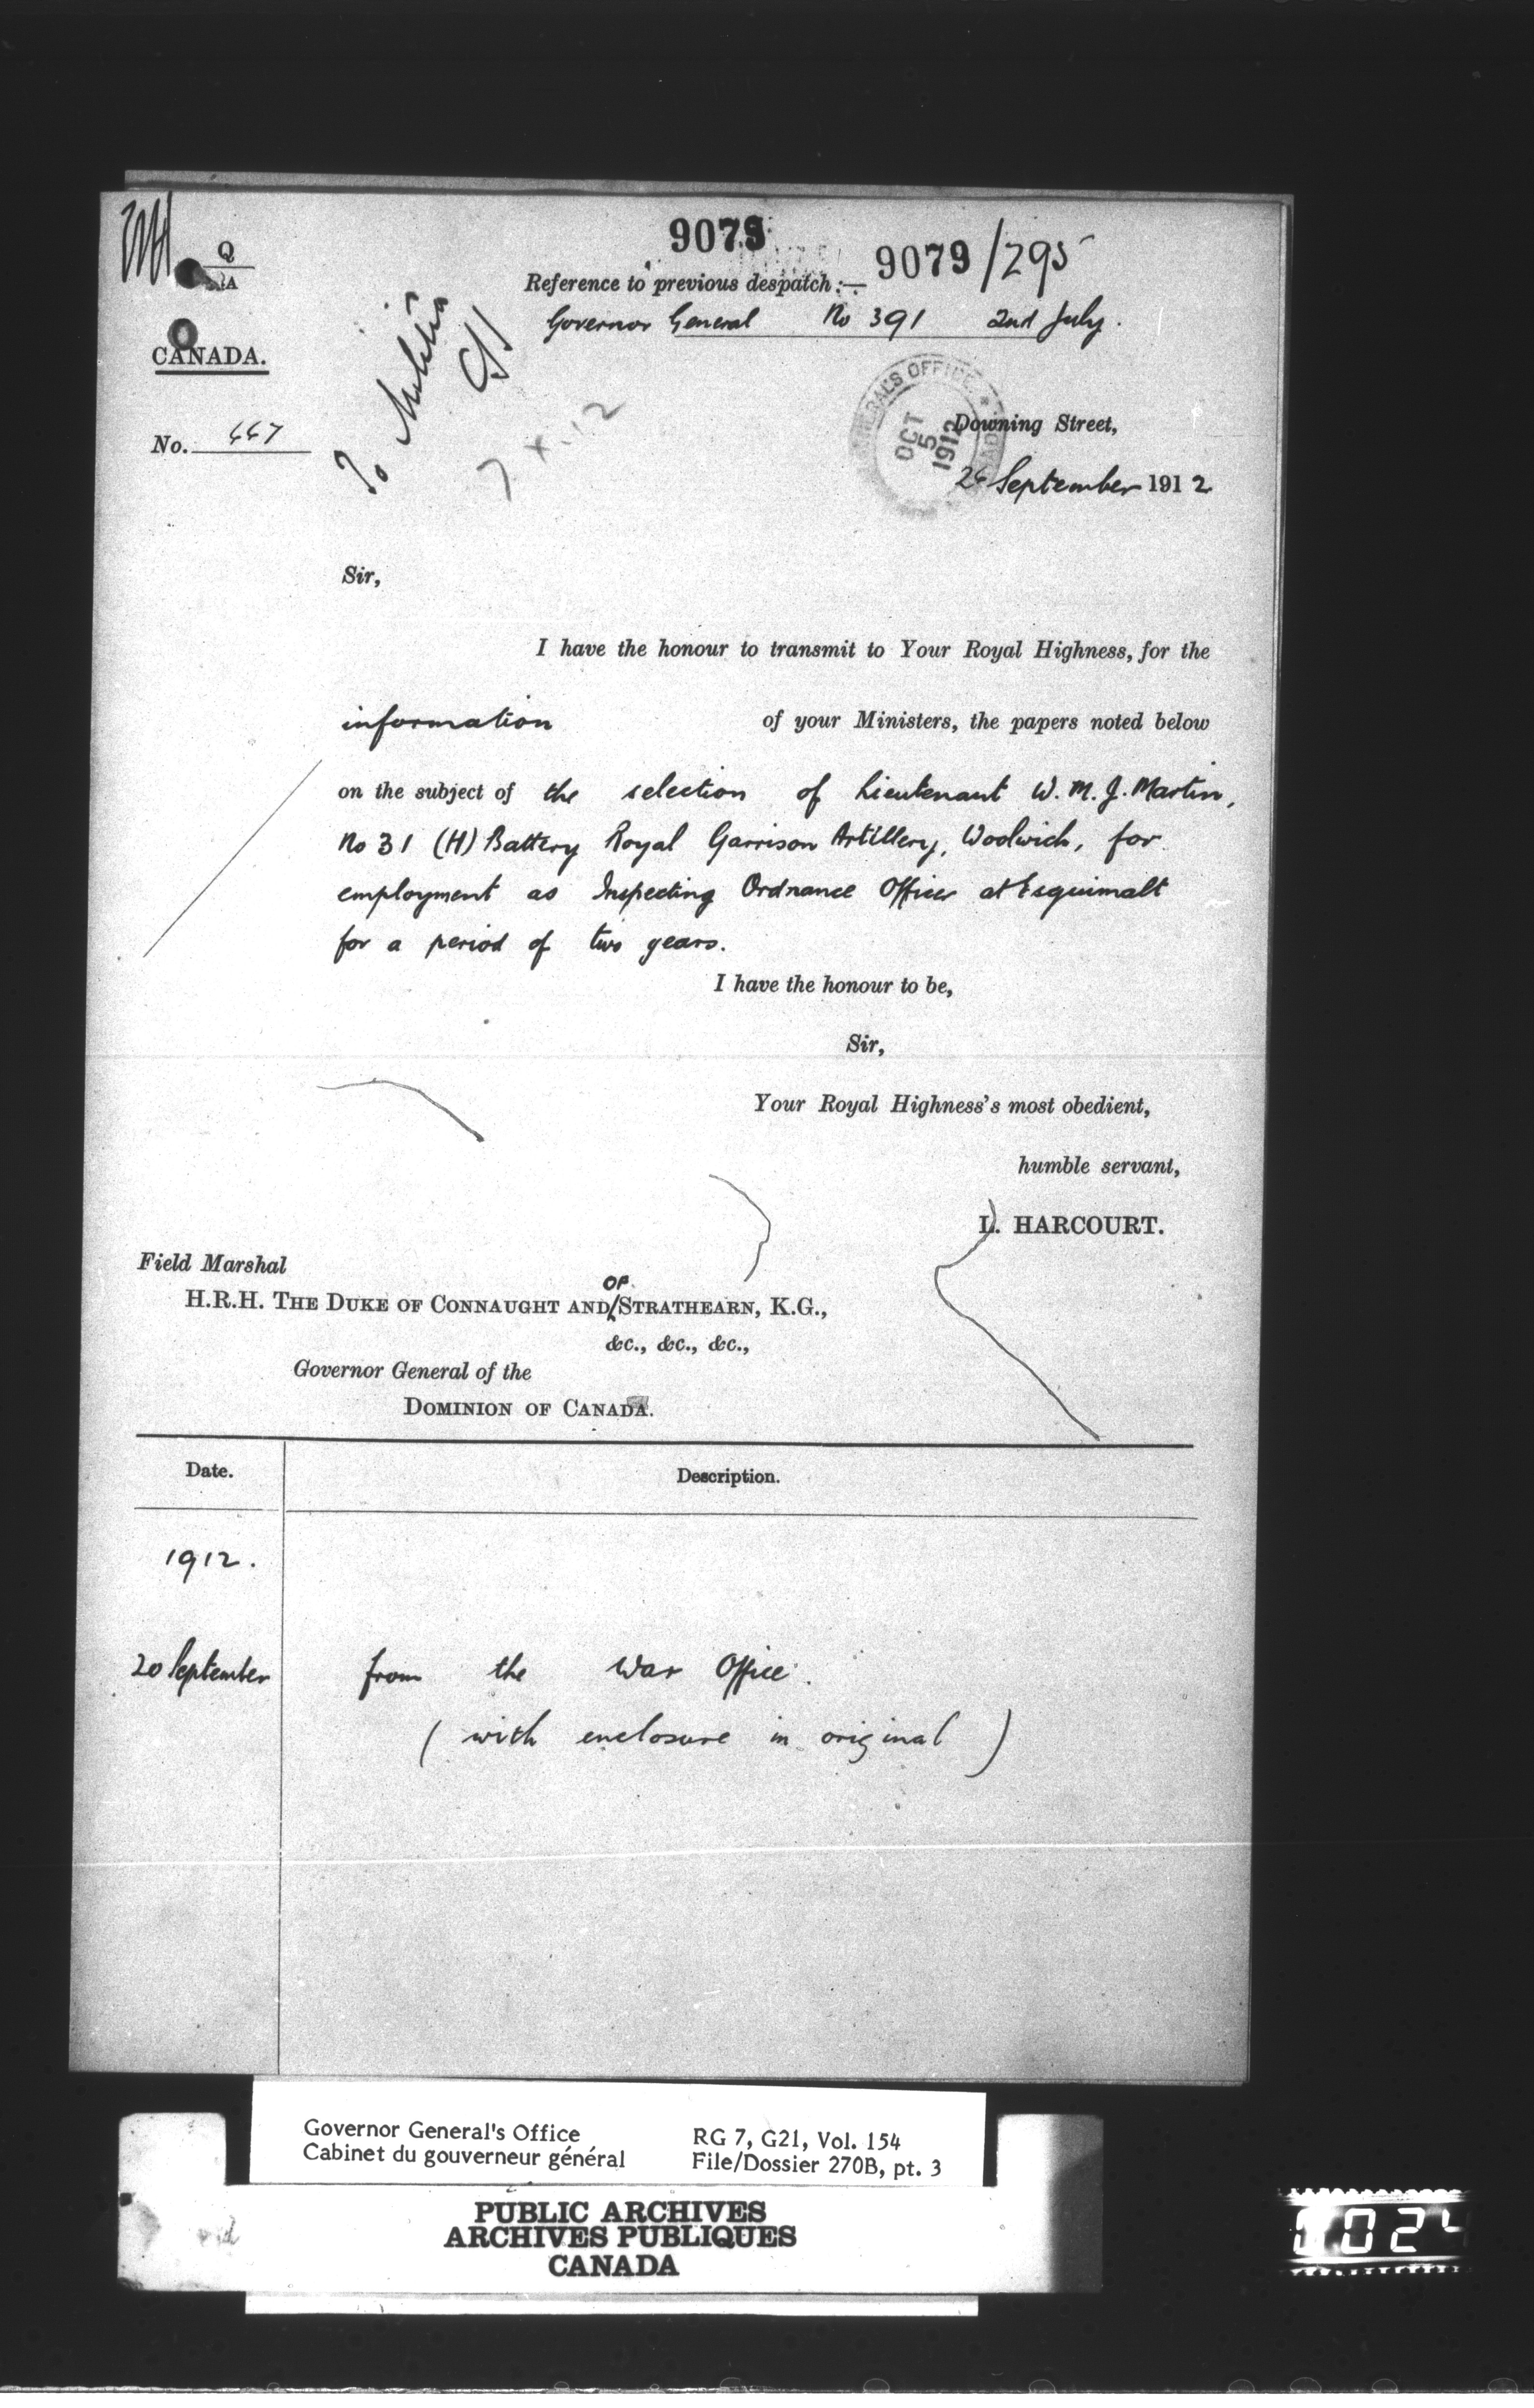 9079
9079/295
Q
A
Reference to previous despatch:—
Governor General No 391 2nd July.
CANADA.
To Militia
7 X 12
No. 447
GENERAL'S OFFICE
OCT
5
1912
Downing Street,
26 September 1912
Sir,
I have the honour to transmit to Your Royal Highness, for the
information of your Ministers, the papers noted below
on the subject of the selection of Lieutenant W. M. J. Martin,
No 31 (H) Battery Royal Garrison Artillery, Woolwich, for
employment as Inspecting Ordnance Officer at Esquimalt
for a period of two years.
I have the honour to be,
Sir,
Your Royal Highness's most obedient,
humble servant,
L. HARCOURT.
Field Marshal
OF
H.R.H. THE DUKE OF CONNAUGHT AND STRATHEARN, K.G.,
&c., &c., &c.,
Governor General of the
DOMINION OF CANADA.
Date. Description.
1912.
20 September from the War Office.
(with enclosure in original)
Governor General's Office RG 7, G21, Vol. 154
Cabinet du gouverneur général File/Dossier 270B, pt. 3
PUBLIC ARCHIVES
ARCHIVES PUBLIQUES
CANADA